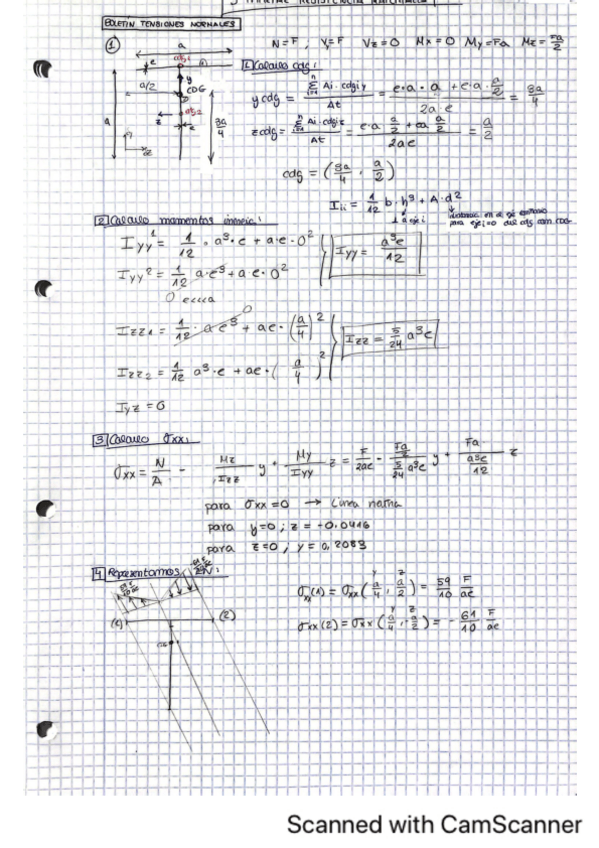 BOLETIN TENSIONES NORMALES
① N=F , Vy=F Vz=0 Mx=0 My=Fa Mz= Fa/2
a
e cdg1
a/2 y CDG
a z cdg2 3a/4
e
1 Calculo cdg:
ycdg = Σ Ai·cdgiy / At = (e·a·a + e·a·a/2) / 2a·e = 3a/4
zcdg = Σ Ai·cdgiz / At = (e·a a/2 + ea a/2) / 2ae = a/2
cdg = (3a/4 , a/2)
Iii = 1/12 b·h³ + A·d²
2 Calculo momentos inercia:
Iyy¹ = 1/12 · a³·e + a·e·0²
Iyy² = 1/12 a·e³ + a·e·0²
Iyy = a³e/12
0
Izz1 = 1/12 · a e³ + ae·(a/4)²
0
Izz2 = 1/12 a³·e + ae·(a/4)²
Izz = 5/24 a³e
Iyz = 0
3 Calculo σxx:
σxx = N/A - Mz/Izz y + My/Iyy z = F/2ae - (Fa/2)/(5/24 a³e) y + Fa/(a³e/12) z
para σxx = 0 → Linea neutra
para y=0 ; z = -0.0416
para z=0 ; y = 0,2083
4 Representamos
(1) (2)
σxx(1) = σxx(a/4 , a/2) = 59/10 F/ae
σxx(2) = σxx(a/4 , -a/2) = - 61/10 F/ae
Scanned with CamScanner